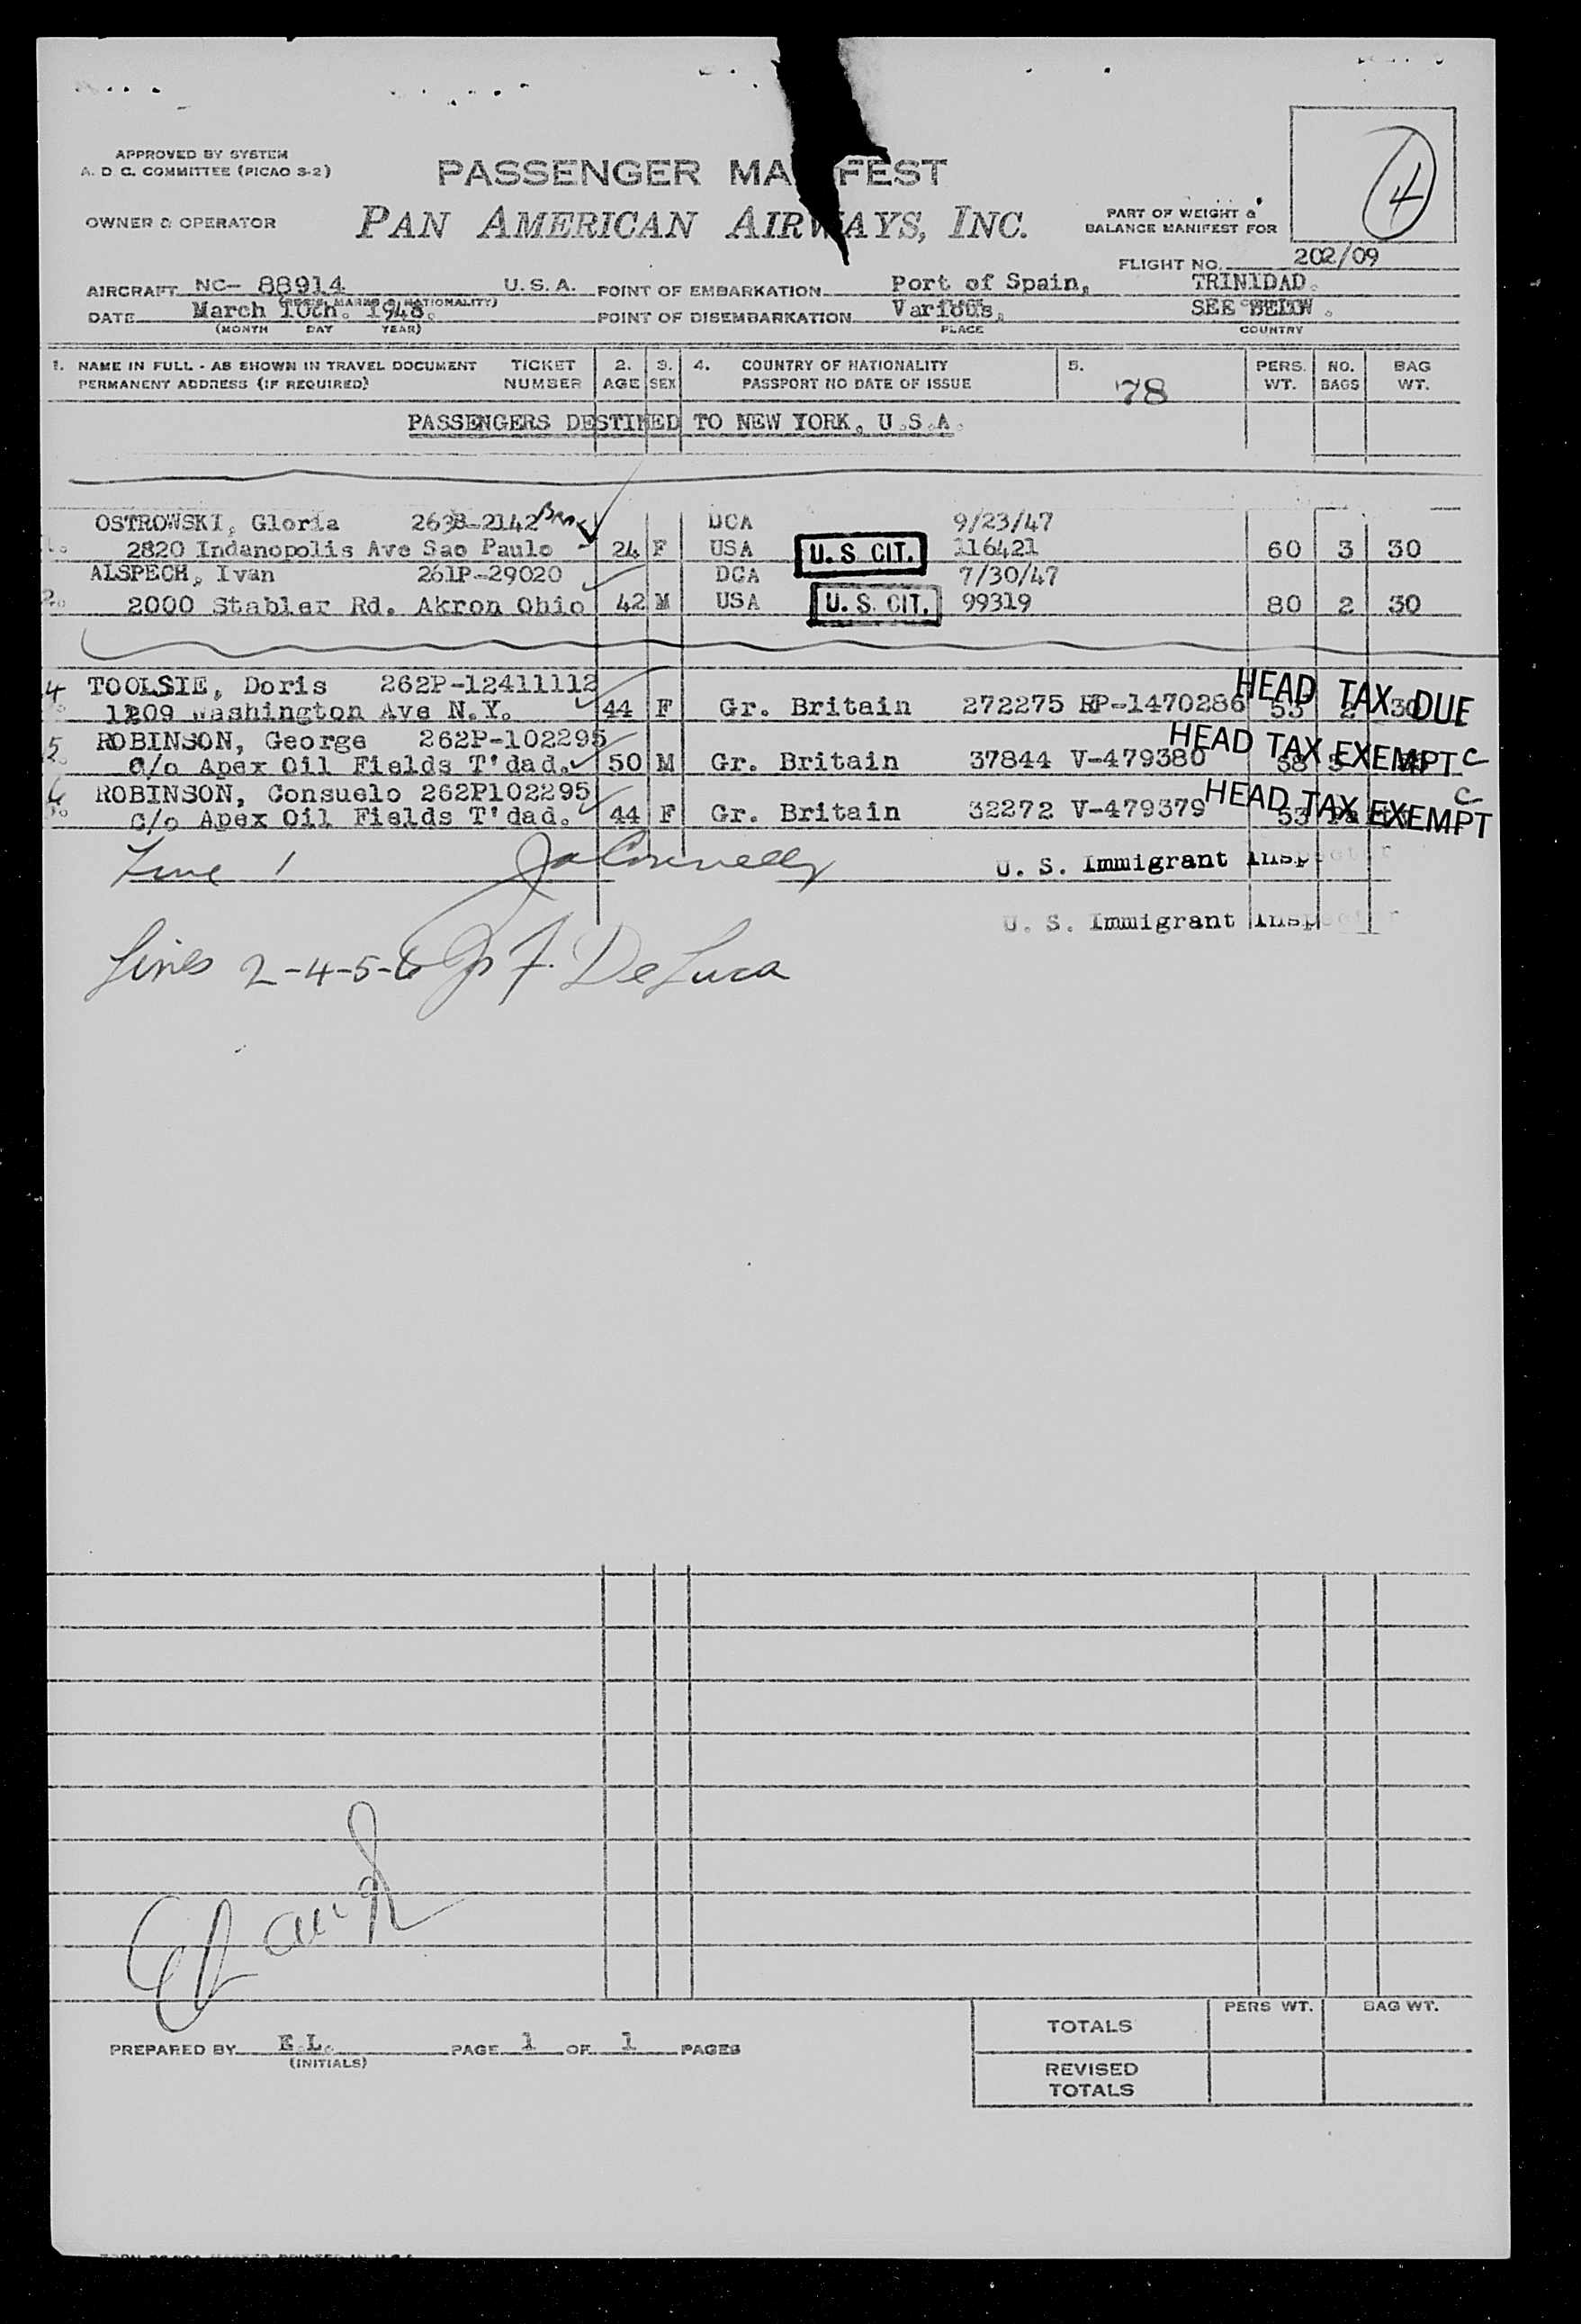 APPROVED BY SYSTEM
A. D. C. COMMITTEE (PICAO S-2)
PASSENGER MA FEST
OWNER & OPERATOR
PAN AMERICAN AIRWAYS, INC.
PART OF WEIGHT &
BALANCE MANIFEST FOR
4
FLIGHT NO. 202/09
AIRCRAFT NC- 88914 U.S.A. POINT OF EMBARKATION Port of Spain, TRINIDAD.
DATE March 10th. 1948. POINT OF DISEMBARKATION Various. SEE BELOW.
(MONTH DAY YEAR) PLACE COUNTRY
1. NAME IN FULL - AS SHOWN IN TRAVEL DOCUMENT TICKET 2. 3. 4. COUNTRY OF NATIONALITY 5. PERS. NO. BAG
PERMANENT ADDRESS (IF REQUIRED) NUMBER AGE SEX PASSPORT NO DATE OF ISSUE 78 WT. BAGS WT.
PASSENGERS DESTINED TO NEW YORK, U.S.A.
OSTROWSKI, Gloria DCA 9/23/47
2820 Indanopolis Ave Sao Paulo 24 F USA U. S. CIT. 116421 60 3 30
ALSPECH, Ivan 261P-29020 DCA 7/30/47
2000 Stabler Rd. Akron Ohio 42 M USA U. S. CIT. 99319 80 2 30
4 TOOLSIE, Doris 262P-12411112 HEAD TAX DUE
1209 Washington Ave N.Y. 44 F Gr. Britain 272275 RP-1470286 53 2 30
5 ROBINSON, George 262P-102295 HEAD TAX EXEMPT C
C/o Apex Oil Fields T'dad. 50 M Gr. Britain 37844 V-479380
6 ROBINSON, Consuelo 262P102295 HEAD TAX EXEMPT C
C/o Apex Oil Fields T'dad. 44 F Gr. Britain 32272 V-479379 53
Line 1 J A Connelly U. S. Immigrant Inspector
U. S. Immigrant Inspector
Lines 2-4-5-6 F. DeLuca
PERS WT. BAG WT.
TOTALS
PREPARED BY E.L. PAGE 1 OF 1 PAGES
(INITIALS)
REVISED
TOTALS